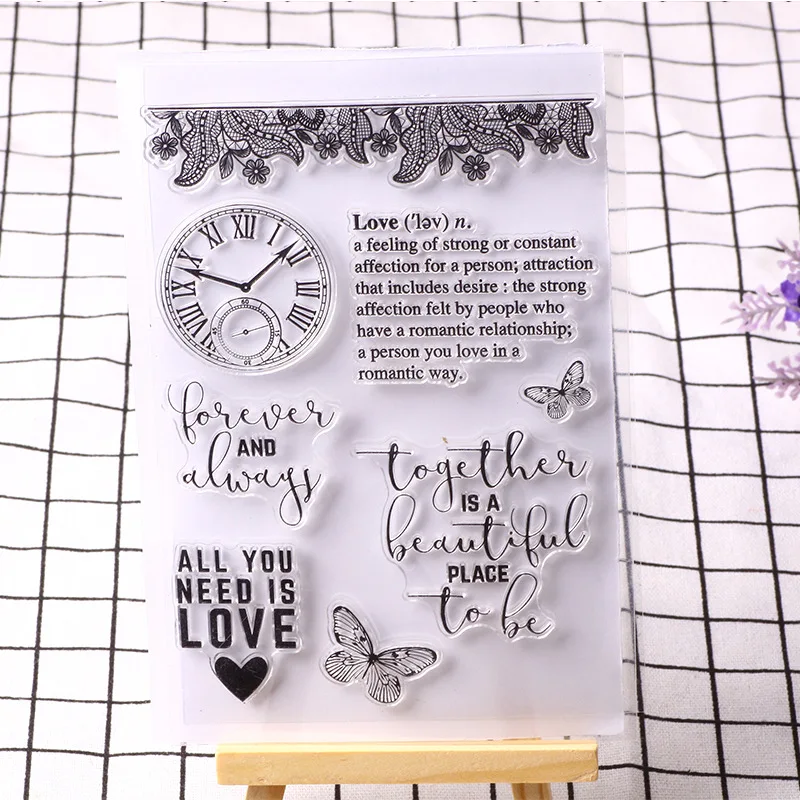 XII
I
II
III
IX
60
30
Love ('ləv) n.
a feeling of strong or constant
affection for a person; attraction
that includes desire : the strong
affection felt by people who
have a romantic relationship;
a person you love in a
romantic way.
forever
AND
always
together
IS A
beautiful
PLACE
to be
ALL YOU
NEED IS
LOVE